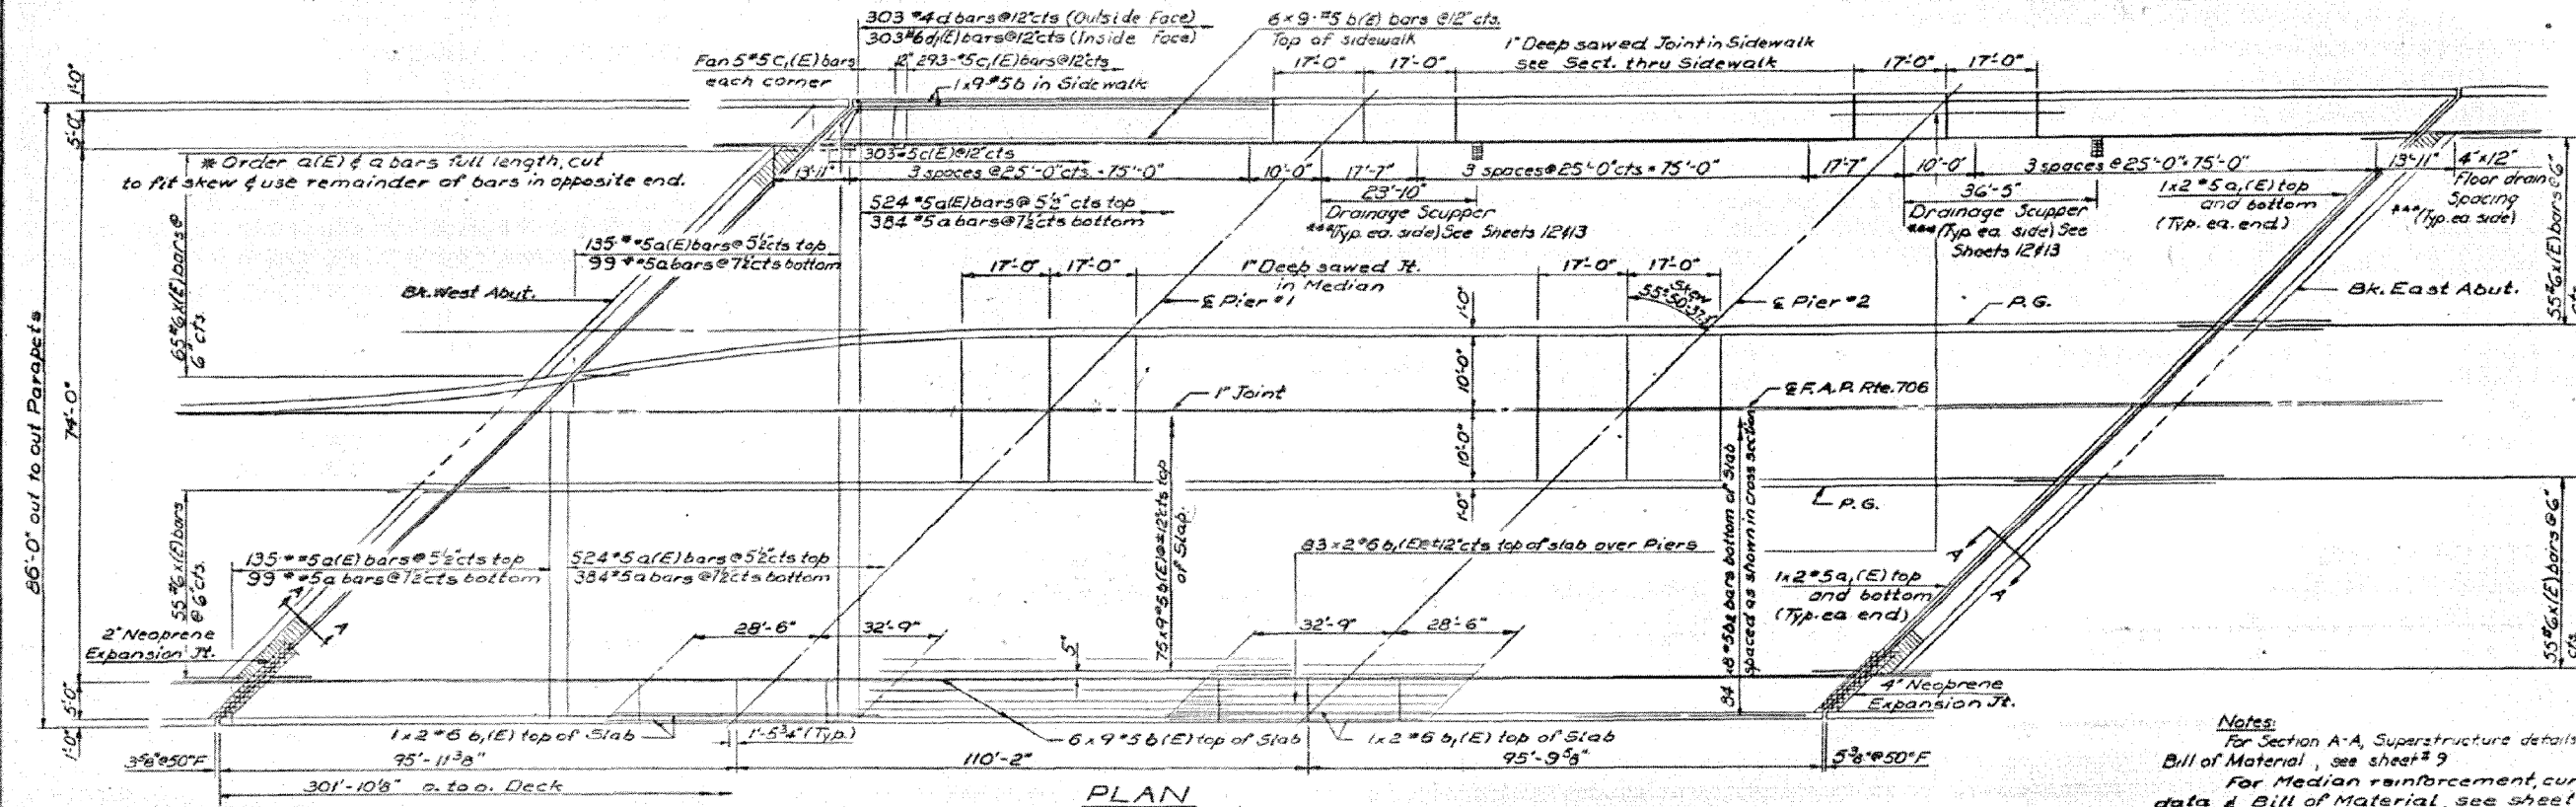 303 #4d bars@12"cts (Outside Face)
303#6d₁(E)bars@12"cts (Inside Face)
6x9-#5 b(E) bars @12" cts.
Top of sidewalk
Fan 5#5 C₁(E) bars
each corner
12" 293-#5c₁(E)bars@12"cts
1x9#5b in Sidewalk
17'-0" 17'-0"
1" Deep sawed Joint in Sidewalk
see Sect. thru Sidewalk
17'-0" 17'-0"
1'-0"
5'-0"
* Order a(E) & a bars full length, cut
to fit skew & use remainder of bars in opposite end.
303-#5c(E)@12"cts
13'-11"
3 spaces @25'-0"cts.=75'-0"
10'-0"
17'-7"
3 spaces@25'-0"cts=75'-0"
17'-7"
10'-0"
3 spaces@25'-0"=75'-0"
13'-11"
4"x12"
Floor drain
Spacing
***(Typ. ea. side)
23'-10"
Drainage Scupper
***(Typ. ea. side) See Sheets 12&13
36'-5"
Drainage Scupper
***(Typ. ea. side) See
Sheets 12&13
1x2 #5a₁(E) top
and bottom
(Typ. ea. end)
524 #5a(E)bars@5½" cts top
384 #5a bars@7½cts bottom
135-*#5a(E)bars@5½cts top
99 *#5a bars@7½cts bottom
65#6x(E)bars@
6" cts.
55#6x(E)bars@6"
cts.
Bk. West Abut.
17'-0" 17'-0"
1" Deep sawed Jt.
in Median
17'-0" 17'-0"
Skew
℄ Pier #1
℄ Pier #2
P.G.
Bk. East Abut.
1'-0"
10'-0"
10'-0"
1'-0"
86'-0" out to out Parapets
74'-0"
1" Joint
℄ F.A.P. Rte. 706
P.G.
55#6x(E)bars
@6"cts.
135-*#5a(E)bars@5½"cts top
99 *#5a bars@7½cts bottom
524#5a(E)bars@5½"cts top
384#5a bars@7½cts bottom
75x9#5b(E)@±12"cts top
of Slab.
83x2#6b₁(E)@±12"cts top of slab over Piers
84 x8#5b₂ bars bottom of Slab
spaced as shown in cross section
1x2#5a₁(E) top
and bottom
(Typ. ea end)
55#6x(E)bars@6"
cts.
A
A
A
A
2" Neoprene
Expansion Jt.
28'-6" 32'-9"
5"
32'-9" 28'-6"
4" Neoprene
Expansion Jt.
5'-0"
1'-0"
1x2#6 b₁(E) top of Slab
1'-5¾"(Typ.)
6x9#5b(E) top of Slab
1x2#6 b₁(E) top of Slab
3⅝"@50°F
95'-11⅜"
110'-2"
95'-9⅝"
5⅜"@50°F
301'-10⅛" o. to o. Deck
PLAN
Notes:
For Section A-A, Superstructure details
Bill of Material, see sheet #9
For Median reinforcement, cur
data & Bill of Material see sheet